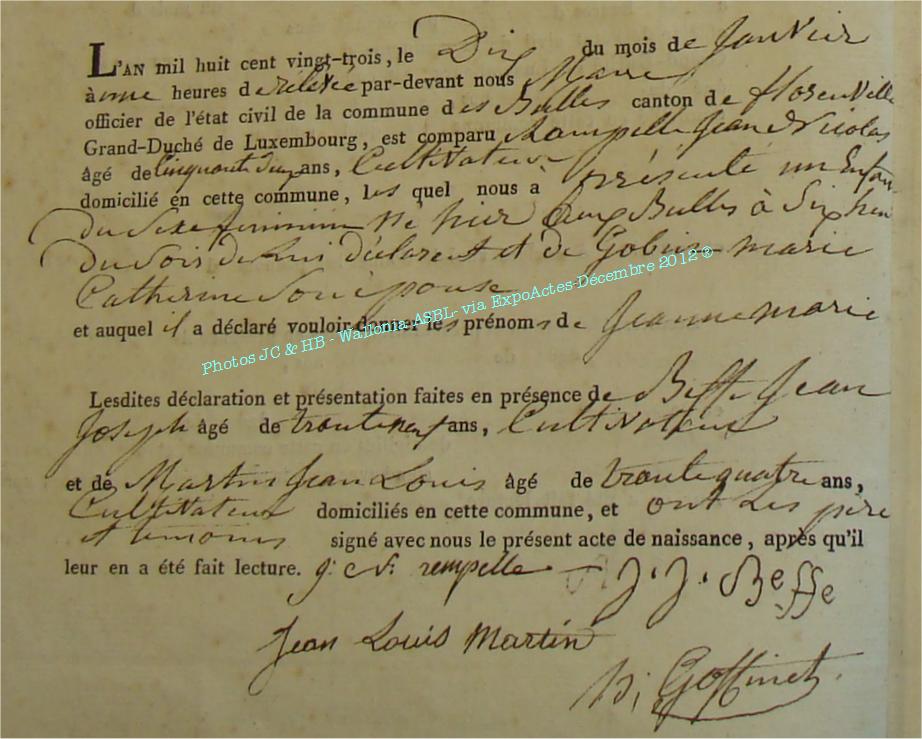 L'AN mil huit cent vingt-trois, le Dix du mois de Janvier
à une heures de rélevée par-devant nous Maire
officier de l'état civil de la commune des Bulles canton de florenville
Grand-Duché de Luxembourg, est comparu Rempelle Jean Nicolas
âgé de Cinquante deux ans, Cultivateur
domicilié en cette commune, les quel nous à présenté un Enfan
du Sexe feminin né hier aux Bulles à Six heu
du Soir de lui déclarent et de Gobin marie
Catherine Son épouse
et auquel il a déclaré vouloir donner les prénoms de Jeanne marie
Photos JC & HB - Wallonia ASBL- via ExpoActes-Décembre 2012 ®
Lesdites déclaration et présentation faites en présence de Beffe Jean
Joseph âgé de trente neuf ans, Cultivateur
et de Martin Jean Louis âgé de trente quatre ans,
Cultivateur domiciliés en cette commune, et ont Les pére
et temoins signé avec nous le présent acte de naissance, après qu'il
leur en a été fait lecture. j: N: rempelle J. J. Beffe
Jean Louis Martin
Goffinet